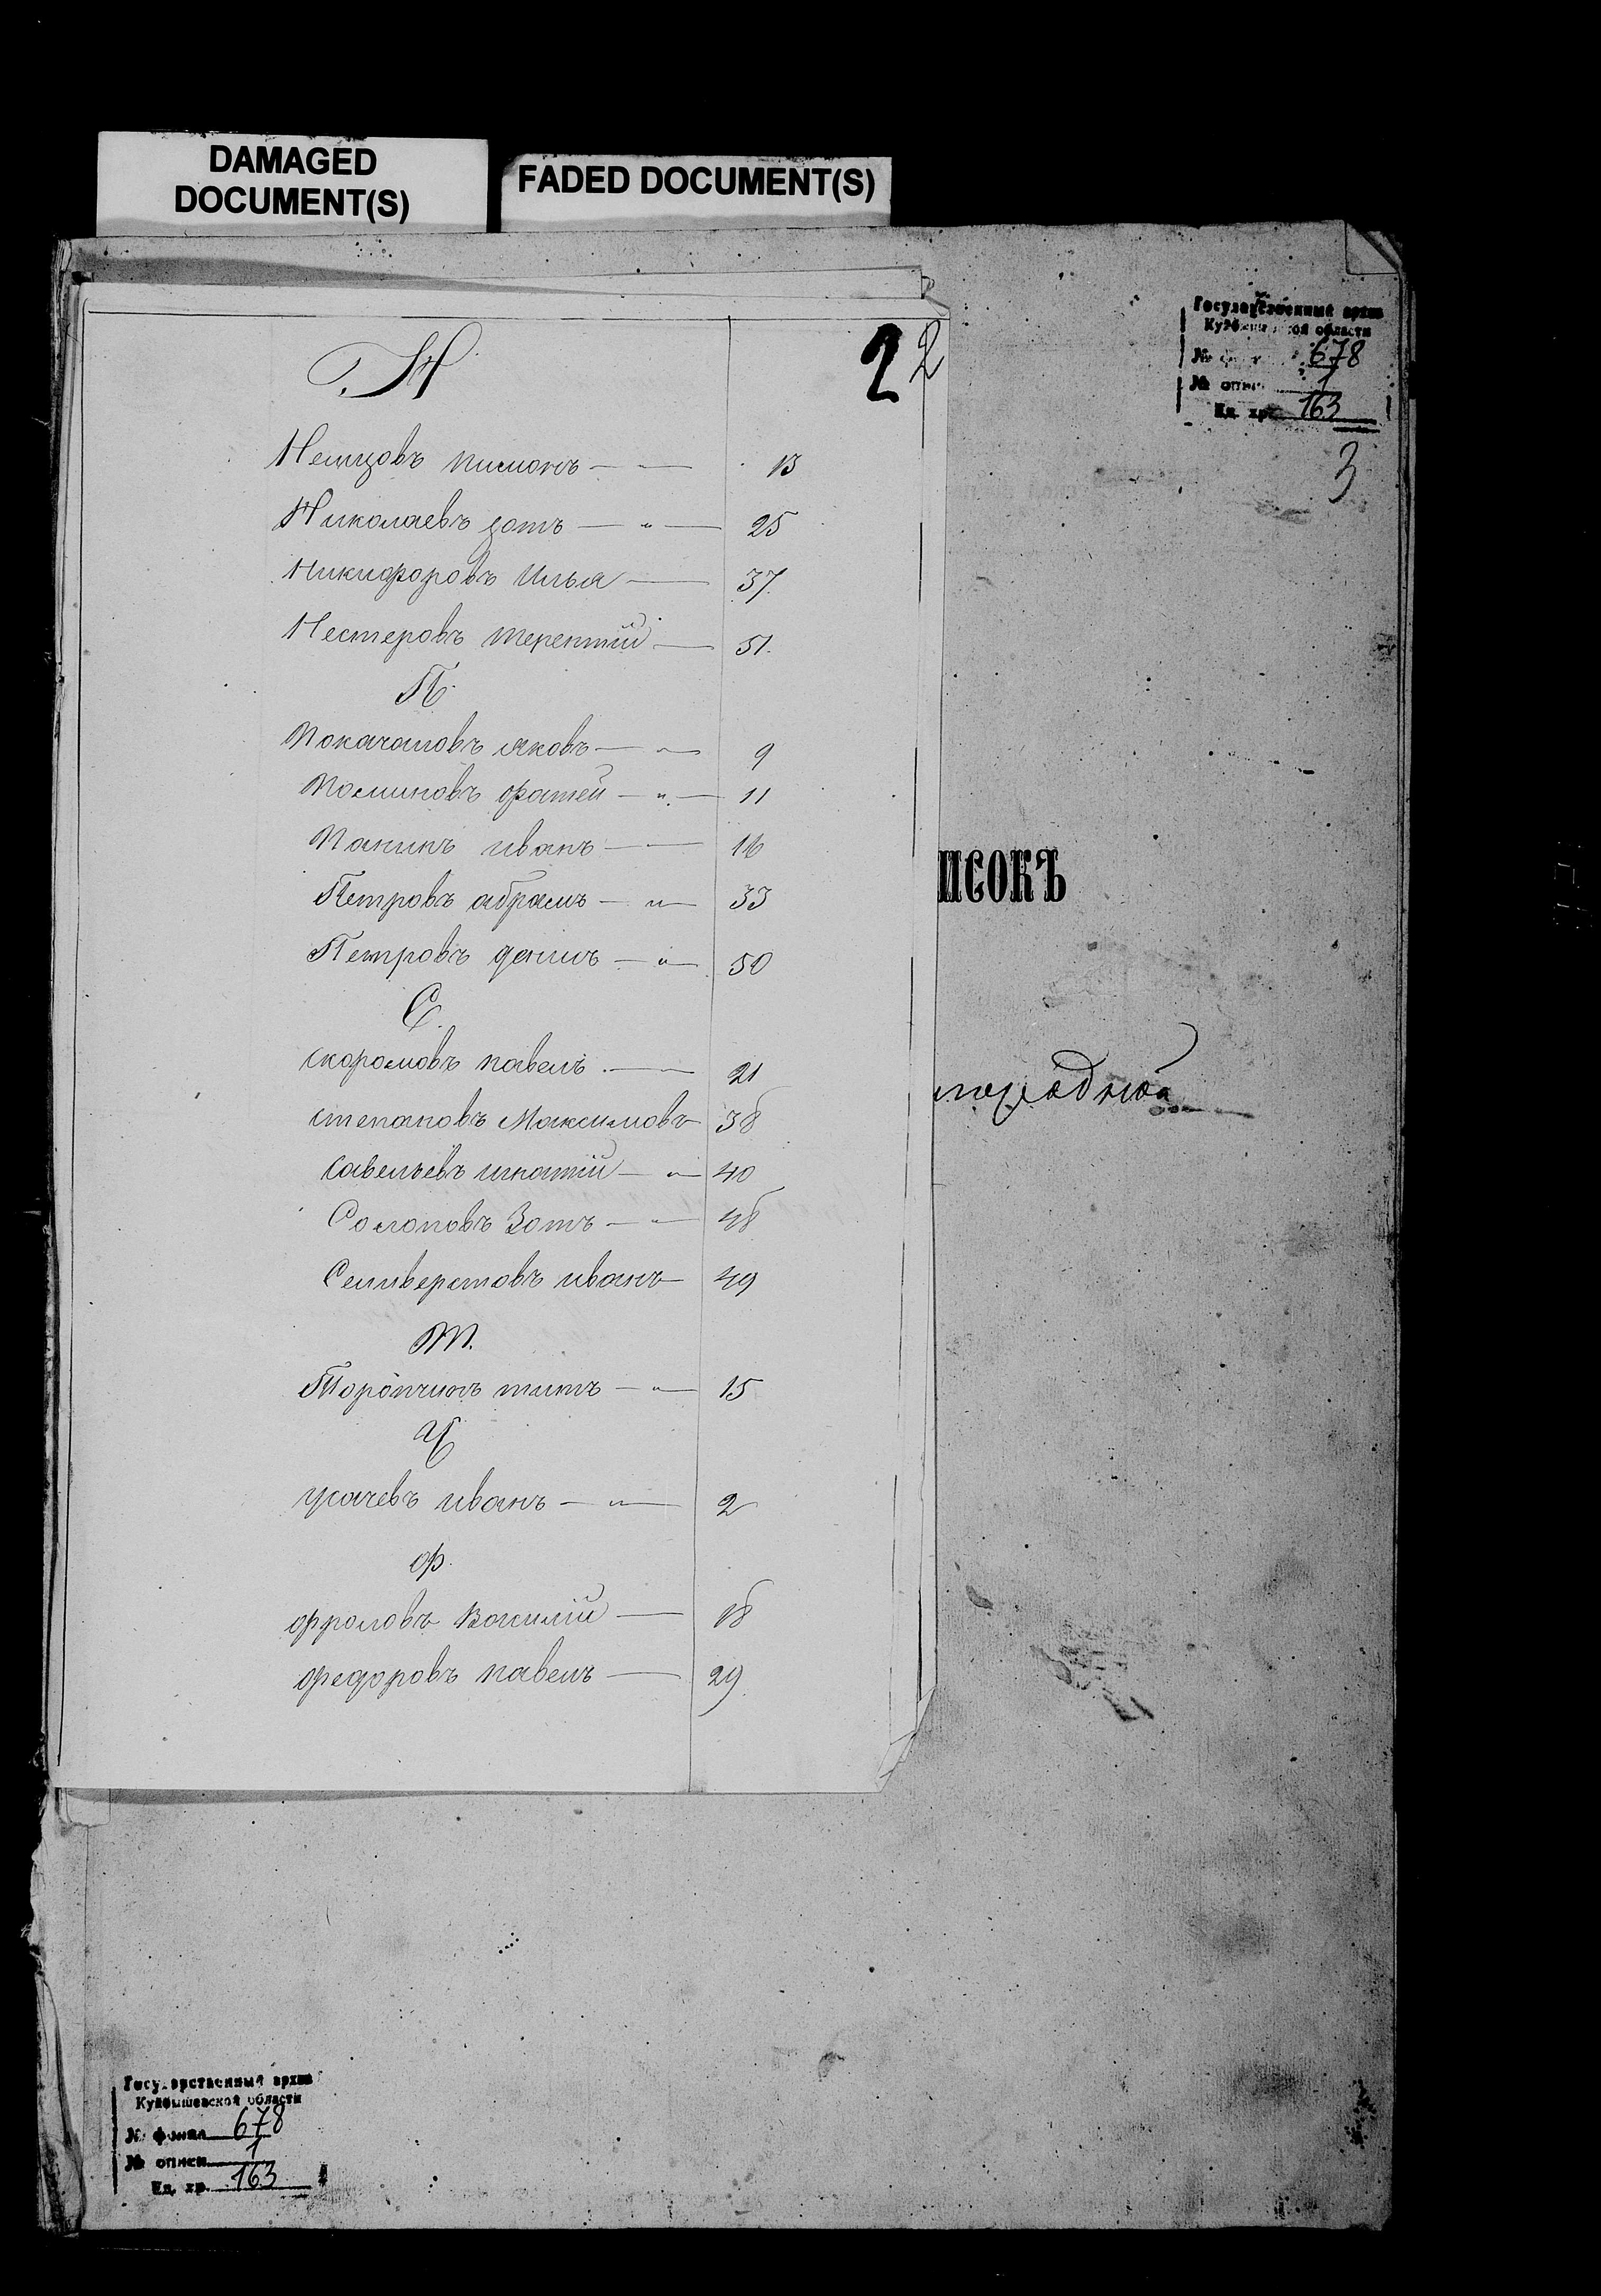 DAMAGED
DOCUMENT(S)
FADED DOCUMENT(S)
Государственный архив
Куйбышевской области
№ 678
№ описи 1
Ед. хр. 163
3
2 2
Н
Немцовъ пимонъ — — 13
Николаевъ зотъ — „ — 25
Никифоровъ Илья — 37.
Нестеровъ терентій — 51.
П.
Покачаловъ яковъ — „ — 9
Поминовъ фатей — „ — 11
Панинъ иванъ — — 16
Петровъ абрамъ — „ — 33
Петровъ данилъ — „ — 50
С.
скоромовъ павелъ — „ — 21
степановъ Максимовъ 38
савельевъ игнатій — „ — 40
Солоповъ Зотъ — „ — 48
Селиверстовъ иванъ — 49
Т.
Торопчинъ титъ — „ — 15
У
усачевъ иванъ — „ — 2
Ф.
фроловъ Василій — 18
федоровъ павелъ — 29.
ИСОКЪ
Государственный архив
Куйбышевской области
№ фонда 678
№ описи 1
Ед. хр. 163